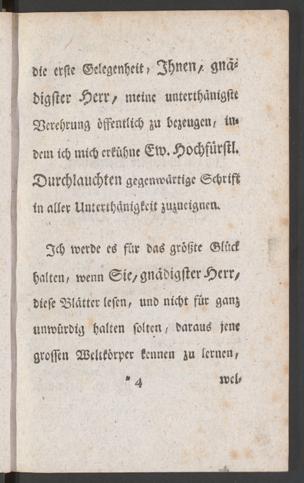 die erste Gelegenheit, Ihnen, gnä-
digster Herr, meine unterthänigste
Verehrung öffentlich zu bezeugen, in-
dem ich mich erkühne Ew. Hochfürstl.
Durchlauchten gegenwärtige Schrift
in aller Unterthänigkeit zuzueignen.
Ich werde es für das größte Glück
halten, wenn Sie, gnädigster Herr,
diese Blätter lesen, und nicht für ganz
unwürdig halten solten, daraus jene
grossen Weltkörper kennen zu lernen,
* 4 wel-